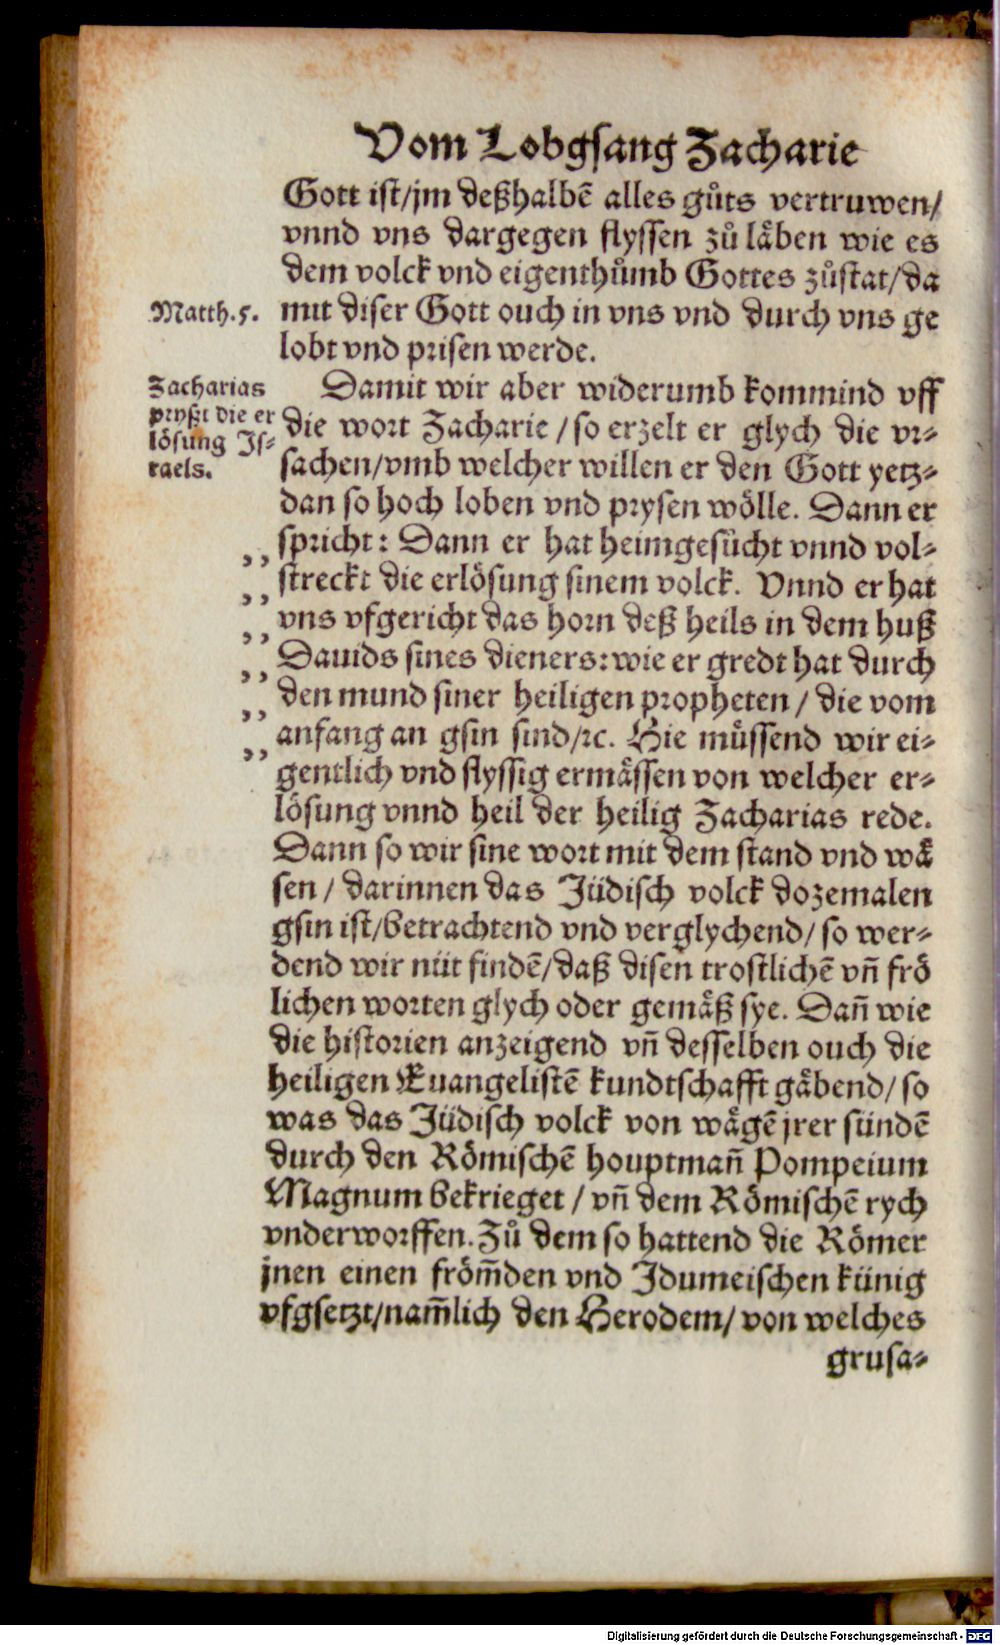 Vom Lobgsang Zacharie
Gott ist/jm deßhalbē alles gůts vertruwen/
vnnd vns dargegen flyssen zů läben wie es
dem volck vnd eigenthůmb Gottes zůstat/da
Matth.5.
mit diser Gott ouch in vns vnd durch vns ge
lobt vnd prisen werde.
Zacharias
pryßt die er
lösung Js⸗
raels.
Damit wir aber widerumb kommind vff
die wort Zacharie / so erzelt er glych die vr⸗
sachen/vmb welcher willen er den Gott yetz⸗
dan so hoch loben vnd prysen wölle. Dann er
spricht: Dann er hat heimgesücht vnnd vol⸗
,, streckt die erlösung sinem volck. Vnnd er hat
,, vns vfgericht das horn deß heils in dem huß
,, Dauids sines dieners: wie er gredt hat durch
,, den mund siner heiligen propheten / die vom
,, anfang an gsin sind/ꝛc. Hie müssend wir ei⸗
,, gentlich vnd flyssig ermässen von welcher er⸗
lösung vnnd heil der heilig Zacharias rede.
Dann so wir sine wort mit dem stand vnd wä
sen / darinnen das Jüdisch volck dozemalen
gsin ist/betrachtend vnd verglychend/ so wer⸗
dend wir nüt findē/daß disen trostlichē vn̄ frö
lichen worten glych oder gemäß sye. Dan̄ wie
die historien anzeigend vn̄ desselben ouch die
heiligen Euangelistē kundtschafft gäbend/ so
was das Jüdisch volck von wägē jrer sündē
durch den Römischē houptman̄ Pompeium
Magnum bekrieget / vn̄ dem Römischē rych
vnderworffen. Zů dem so hattend die Römer
jnen einen fröm̄den vnd Jdumeischen künig
vfgsetzt/nam̄lich den Herodem/ von welches
grusa⸗
Digitalisierung gefördert durch die Deutsche Forschungsgemeinschaft - DFG